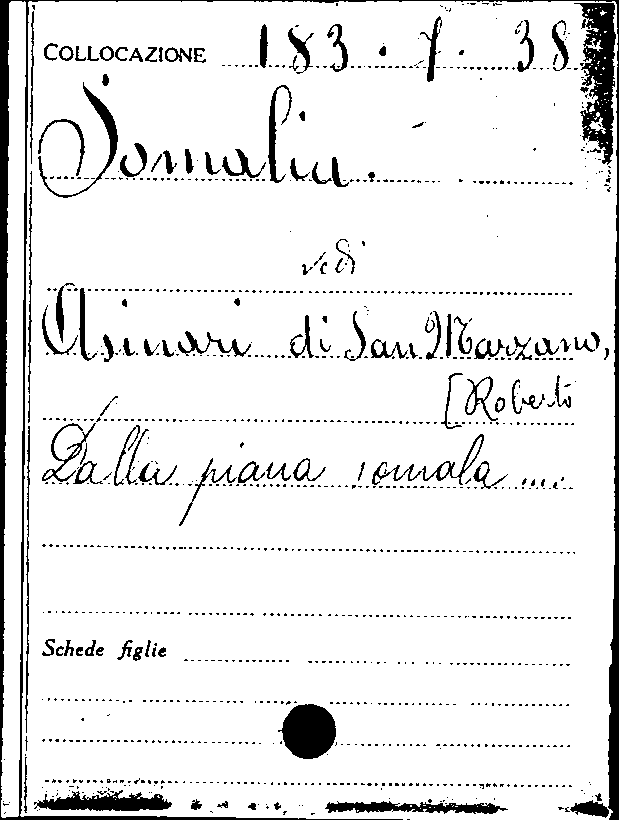 COLLOCAZIONE 183.7.38
Somalia.
vedi
Asinari di San Marzano,
[Roberto
Dalla piana somala ....
Schede figlie